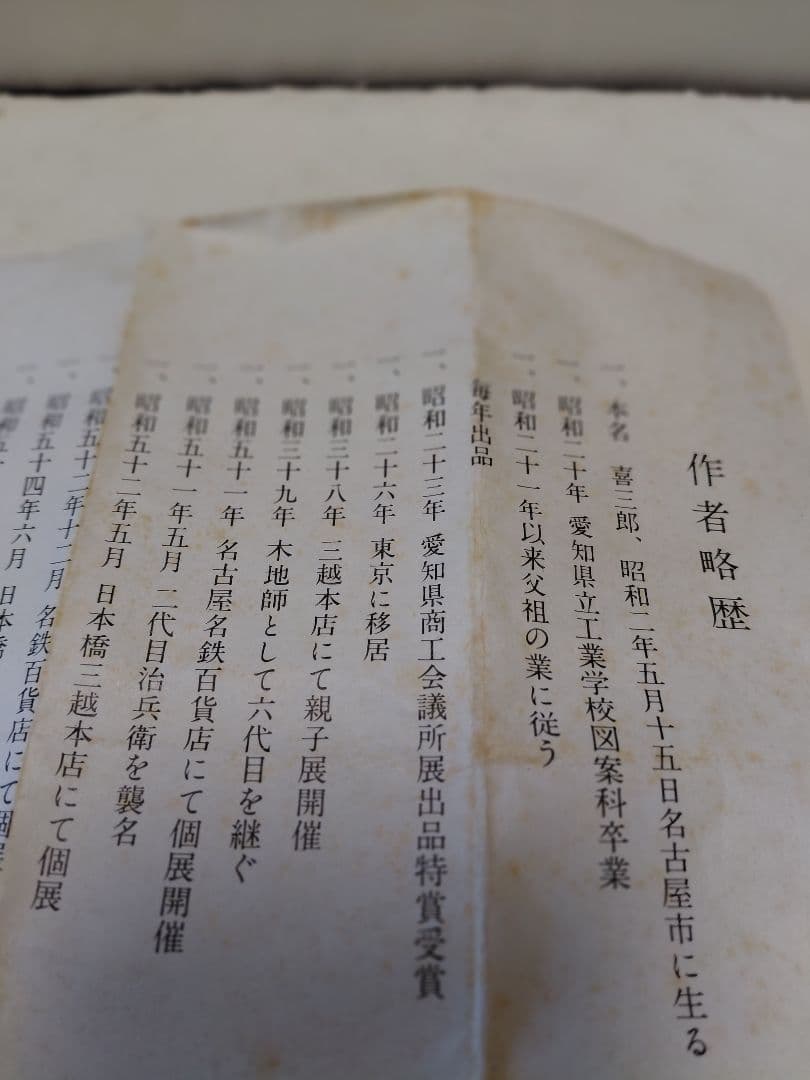 作者略歴
一、本名 喜三郎、昭和二年五月十五日名古屋市に生る
一、昭和二十年 愛知県立工業学校図案科卒業
一、昭和二十一年以来父祖の業に従う
毎年出品
一、昭和二十三年 愛知県商工会議所展出品特賞受賞
一、昭和二十六年 東京に移居
一、昭和三十八年 三越本店にて親子展開催
一、昭和三十九年 木地師として六代目を継ぐ
一、昭和五十一年 名古屋名鉄百貨店にて個展開催
一、昭和五十一年五月 二代目治兵衛を襲名
一、昭和五十二年五月 日本橋三越本店にて個展
一、昭和五十二年十二月 名鉄百貨店にて個展
一、昭和五十四年六月 日本橋
一、昭和五十